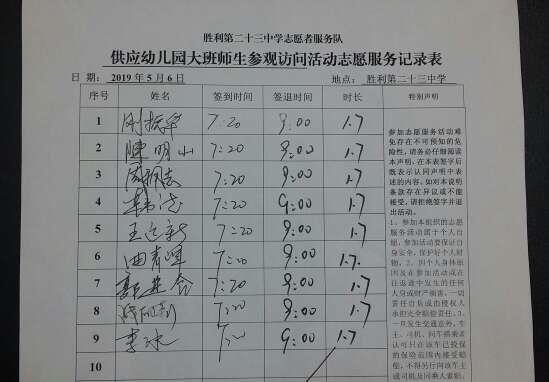 胜利第二十三中学志愿者服务队
供应幼儿园大班师生参观访问活动志愿服务记录表
日 期：2019年5月6日 地点：胜利第二十三中学
序号 姓名 签到时间 签退时间 时长 特别声明
1 7:20 9:00 1.7
2 陈明小 7:20 9:00 1.7
3 7:20 9:00 1.7
4 7:20 9:00 1.7
5 7:20 9:00 1.7
6 7:20 9:00 1.7
7 7:20 9:00 1.7
8 7:20 9:00 1.7
9 李冰 7:20 9:00 1.7
10
参加志愿服务活动难
免存在不可预知的危
险性，请务必仔细阅读
本声明，在本表签字后
既表示认同声明中表
述的内容。如对本说明
条款存在异议或不能
接受，请拒绝签字并退
出活动。
1、参加本组织的志愿
服务活动属于个人自
愿，参加活动要保证自
身安全，保护好个人财
物。2、因个人身体原
因及在参加活动或在
往返途中发生的任何
人身或财产损害，一切
责任自负或由侵权人
承担完全赔偿责任。3、
一旦发生交通意外，车
主、司机、同车搭乘者
认可只在该车已投保
的保险范围内接受赔
偿，不得另行向该车主
或司机及同乘人索赔。